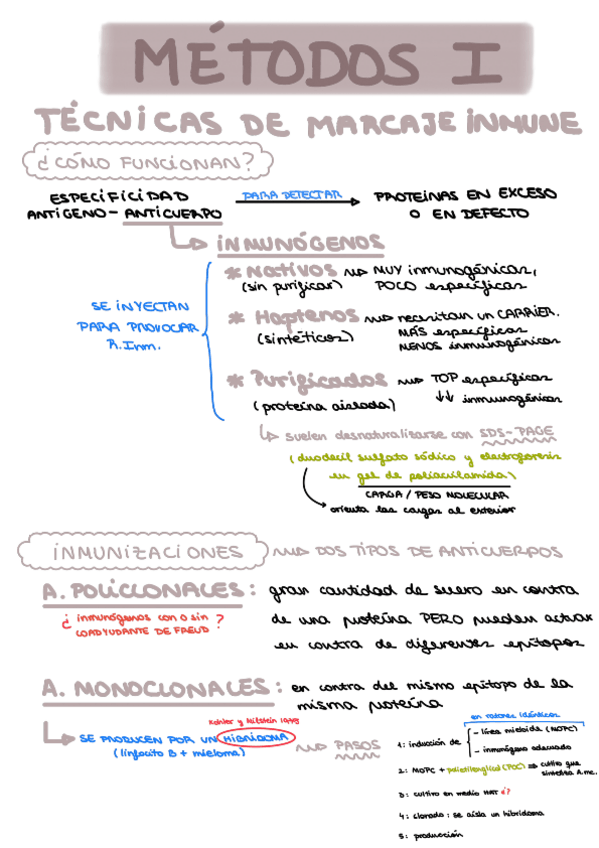 MÉTODOS I
TÉCNICAS DE MARCAJE INMUNE
¿CÓMO FUNCIONAN?
ESPECIFICIDAD
ANTÍGENO - ANTICUERPO
PARA DETECTAR
PROTEÍNAS EN EXCESO
O EN DEFECTO
INMUNÓGENOS
SE INYECTAN
PARA PROVOCAR
R. Inm.
* Nativos
(sin purificar)
MUY inmunogénicas,
POCO específicas
* Haptenos
(sintéticos)
necesitan un CARRIER.
MÁS específicas
MENOS inmunogénicas
* Purificados
(proteína aislada)
TOP específicas
↓↓ inmunogénicas
suelen desnaturalizarse con SDS-PAGE
(duodecil sulfato sódico y electroforesis
en gel de poliacrilamida)
CARGA / PESO MOLECULAR
orienta las cargas al exterior
INMUNIZACIONES
DOS TIPOS DE ANTICUERPOS
A. POLICLONALES:
gran cantidad de suero en contra
de una proteína PERO pueden actuar
en contra de diferentes epítopos
¿inmunógenos con o sin
COADYUDANTE DE FREUD?
A. MONOCLONALES:
en contra del mismo epítopo de la
misma proteína
Kohler y Milstein 1975
SE PRODUCEN POR UN HIBRIDOMA
(linfocito B + mieloma)
PASOS
en ratones idénticos
1: inducción de
- línea mieloide (MOPC)
- inmunógeno adecuado
2: MOPC + polietilenglicol (POC) ⇒ cultivo que
sintetiza A.mc.
3: cultivo en medio HAT ¿?
4: clonado: se aísla un hibridoma
5: producción